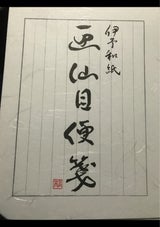 伊予和紙
画仙目便箋